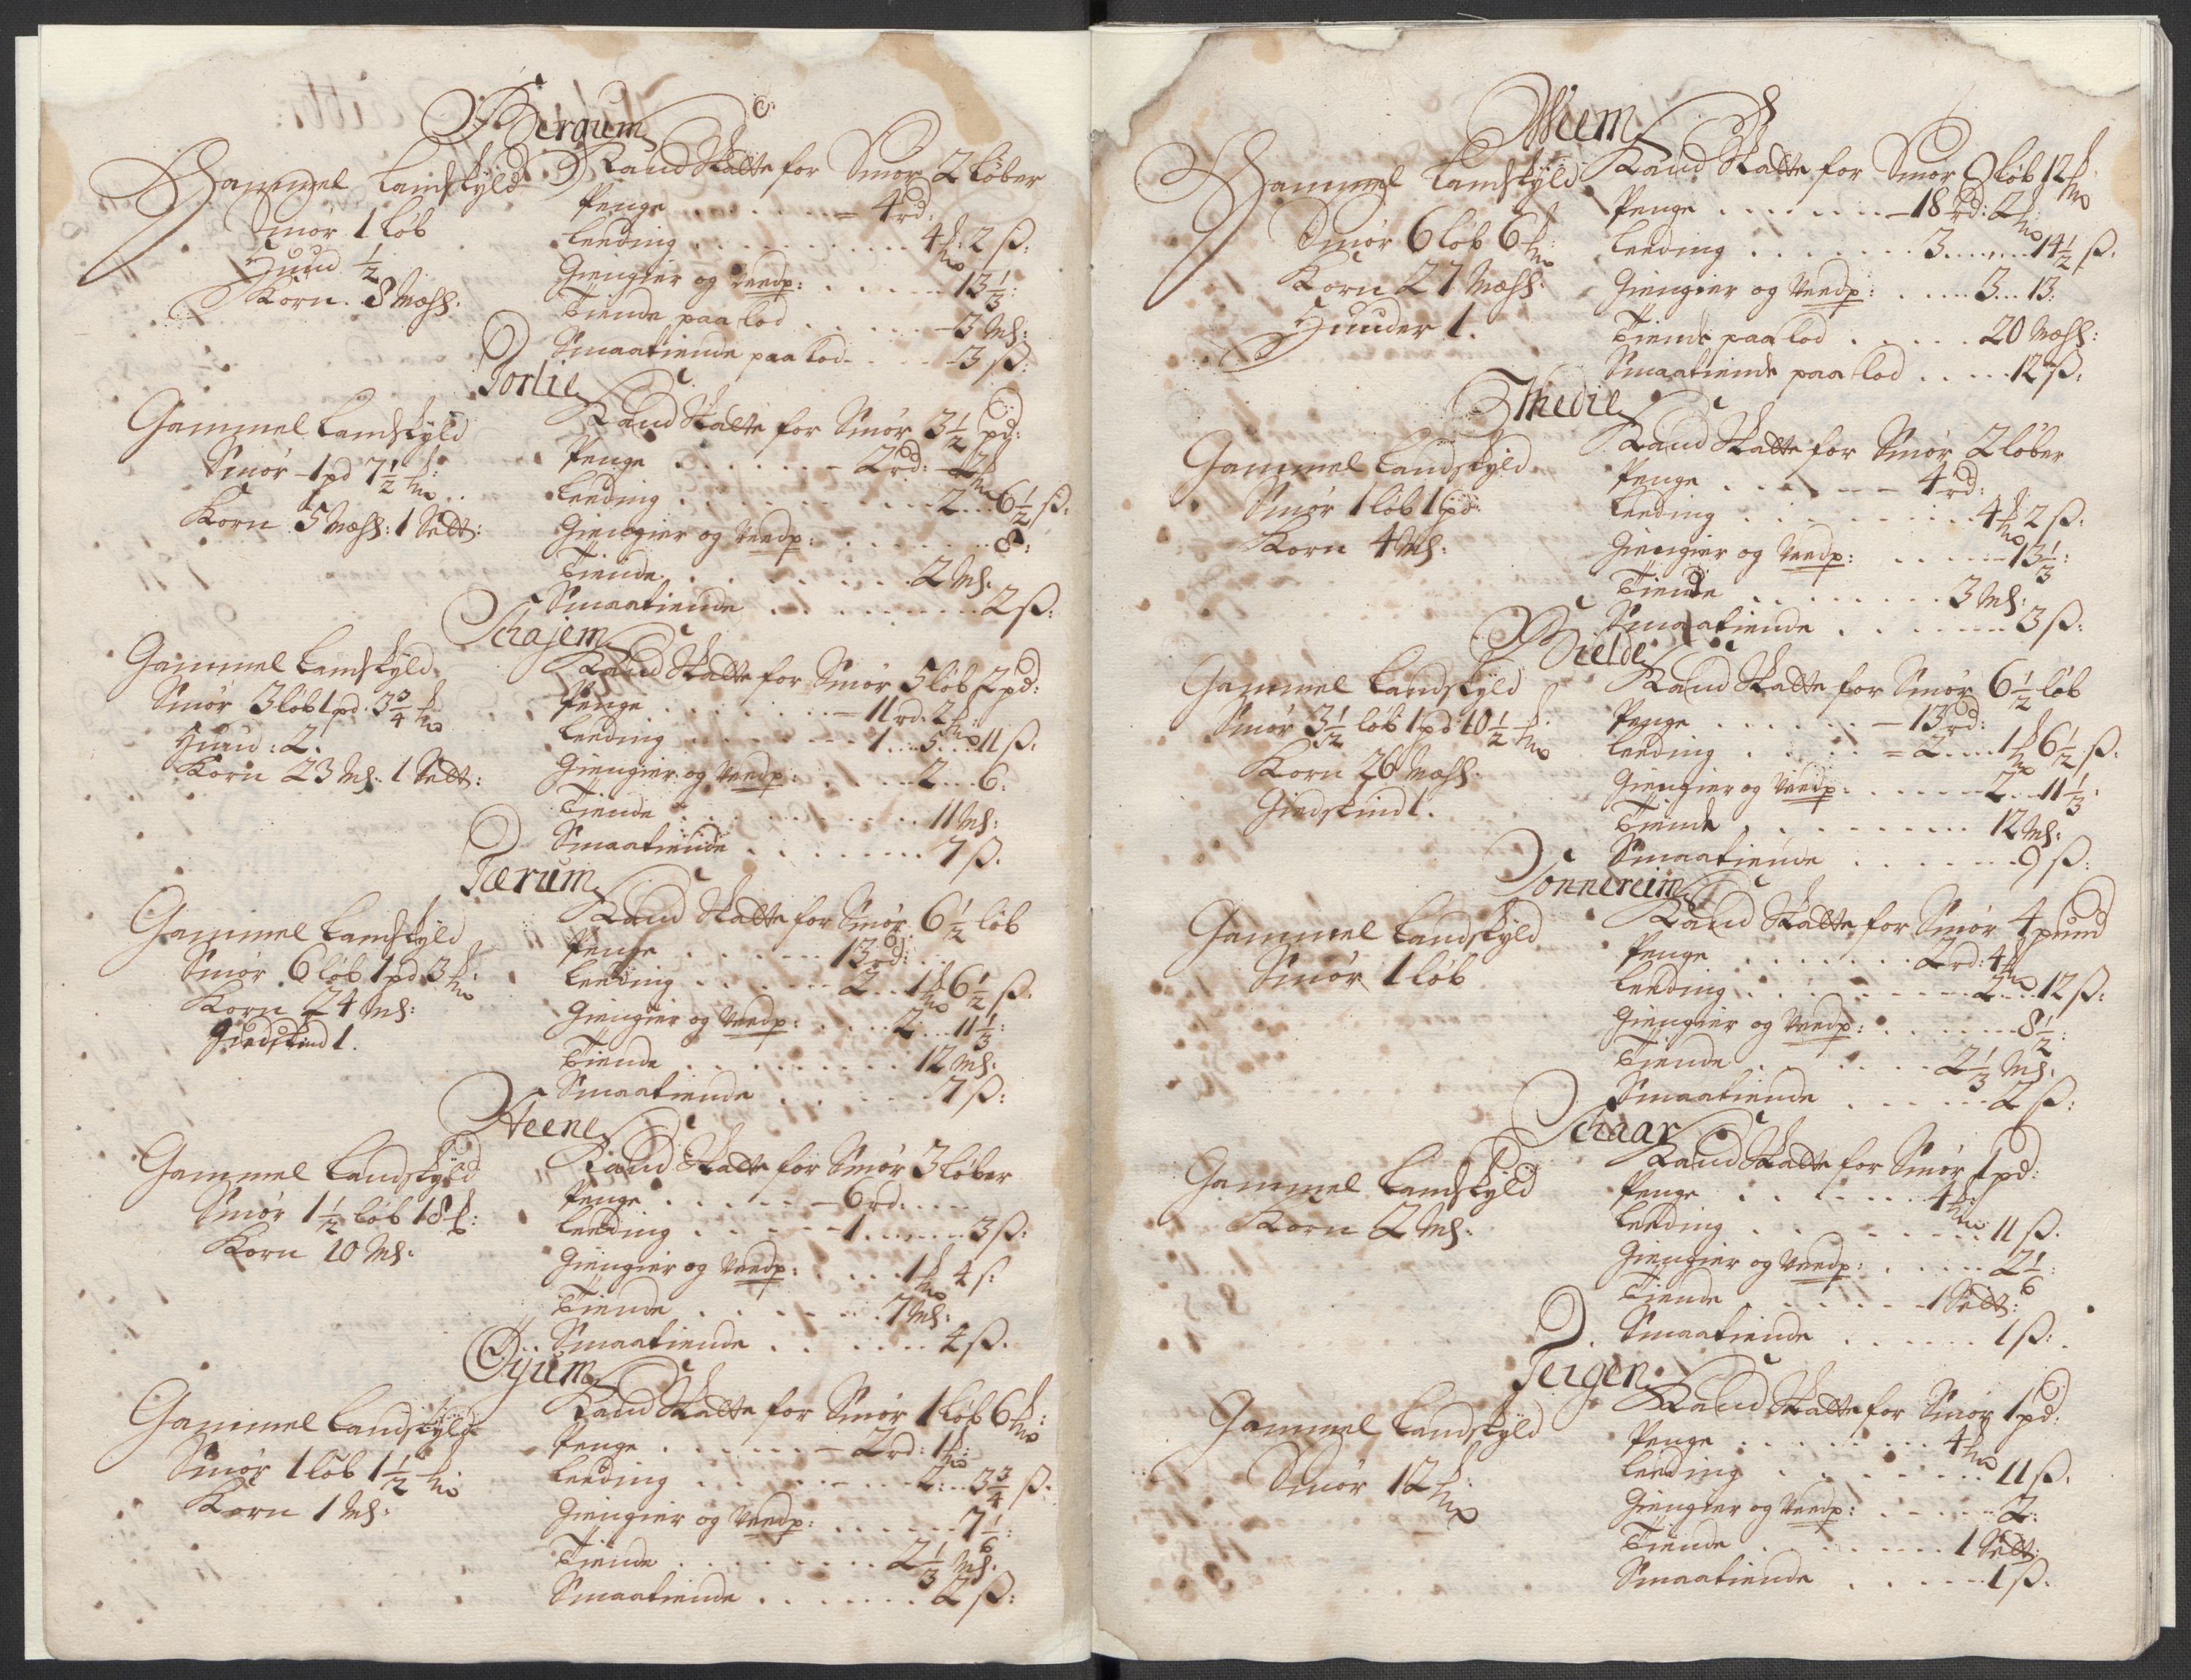 Bergum
Gammel Landskyld
Smør 1 løb
Huud 1/2
Korn 8 Mæhl:
Kand Skatte for Smør 2 løber
Penge . . . . . . 4 rd:
Leeding . . . . . . 4 mk: 2 ß:
Giengier og Veedp: . . . . . 13 1/3:
Tiende paa lod . . . . . 3 Ml:
Smaatiende paa lod . . . . 3 ß:
Torlie
Gammel Landskyld
Smør 1 pd 7 1/2 mk:
Korn 5 Mæhl: 1 Sætt:
Kand Skatte for Smør 3 1/2 pd:
Penge . . . . . . 2 rd: 2 mk
Leeding . . . . . . 2 . . 6 1/2 ß.
Giengier og Veedp: . . . . . 8:
Tiende . . . . . . 2 Ml.
Smaatiende . . . . . . 2 ß:
Schajem
Gammel Landskyld
Smør 3 løb 1 pd. 3 3/4 mk
Huud: 2.
Korn 23 Ml. 1 Sætt:
Kand Skatte for Smør 5 løb 2 pd:
Penge . . . . . . 11 rd. 2 mk:
Leeding . . . . . 1 . . 5 . . 11 ß.
Giengier og Veedp: . . . . 2 . . 6.
Tiende . . . . . . 11 Ml:
Smaatiende . . . . . . 7 ß.
Tærum
Gammel Landskyld
Smør 6 løb 1 pd 3 mk:
Korn 24 Ml:
Giedskind 1.
Kand Skatte for Smør 6 1/2 løb
Penge . . . . . . 13 rd:
Leeding . . . . . 2 . . 1 mk 6 1/2 ß.
Giengier og Veedp: . . . . 2 . . 11 1/3:
Tiende . . . . . . 12 Ml:
Smaatiende . . . . . . 7 ß:
Steene
Gammel Landskyld
Smør 1 1/2 løb 18 mk:
Korn 10 Ml:
Kand Skatte for Smør 3 løber
Penge . . . . . . 6 rd. . . .
Leeding . . . . . 1 . . . . 3 ß:
Giengier og Veedp: . . . . 1 mk 4 ß
Tiende . . . . . . 7 Ml:
Smaatiende . . . . . . 4 ß.
Øÿum
Gammel Landskyld
Smør 1 løb 1 1/2 mk:
Korn 1 Ml:
Kand Skatte for Smør 1 løb 6 mk:
Penge . . . . . . 2 rd: 1 mk:
Leeding . . . . . . 2 . . 3 3/4 ß.
Giengier og Veedp: . . . . . 7 1/6:
Tiende . . . . . . 2 1/3 Ml.
Smaatiende . . . . . . 2 ß:
Wiem
Gammel Landskyld
Smør 6 løb 6 mk:
Korn 27 Mæhl:
Huuder 1.
Kand Skatte for Smør 9 løb 12 mk:
Penge . . . . . . 18 rd: 2 mk:
Leeding . . . . . . 3 . . . . 14 1/2 ß.
Giengier og Veedp: . . . . 3 . . 13:
Tiende paa lod . . . . . 20 Mæhl:
Smaatiende paa lod . . . . 12 ß:
Thedie
Gammel Landskyld
Smør 1 løb 1 pd:
Korn 4 Ml:
Kand Skatte for Smør 2 løber
Penge . . . . . . 4 rd:
Leeding . . . . . . 4 mk 2 ß.
Giengier og Veedp: . . . . . 13 1/3:
Tiende . . . . . . 3 Ml:
Smaatiende . . . . . . 3 ß:
Bielde
Gammel Landskyld
Smør 3 1/2 løb 1 pd 10 1/2 mk.
Korn 26 Mæhl:
Giedskind 1.
Kand Skatte for Smør 6 1/2 løb
Penge . . . . . . 13 rd:
Leeding . . . . . 2 . . 1 mk 6 1/2 ß.
Giengier og Veedp: . . . . 2 . . 11 1/3:
Tiende . . . . . . 12 Ml:
Smaatiende . . . . . . 9 ß:
Tonnereim
Gammel Landskyld
Smør 1 løb
Kand Skatte for Smør 4 pund
Penge . . . . . . 2 rd: 4 mk
Leeding . . . . . . 2 . . 12 ß:
Giengier og Veedp: . . . . . 8 1/2:
Tiende . . . . . . 2 1/3 Ml.
Smaatiende . . . . . . 2 ß:
Schaar
Gammel Landskyld
Korn 2 Ml:
Kand Skatte for Smør 1 pd:
Penge . . . . . . 4 mk:
Leeding . . . . . . 11 ß.
Giengier og Veedp: . . . . . 2 1/6:
Tiende . . . . . . 1 Sætt:
Smaatiende . . . . . . 1 ß:
Teigen
Gammel Landskyld
Smør 12 mk:
Kand Skatte for Smør 1 pd:
Penge . . . . . . 4 mk
Leeding . . . . . . 11 ß.
Giengier og Veedp: . . . . . 2:
Tiende . . . . . . 1 Sætt:
Smaatiende . . . . . . 1 ß.